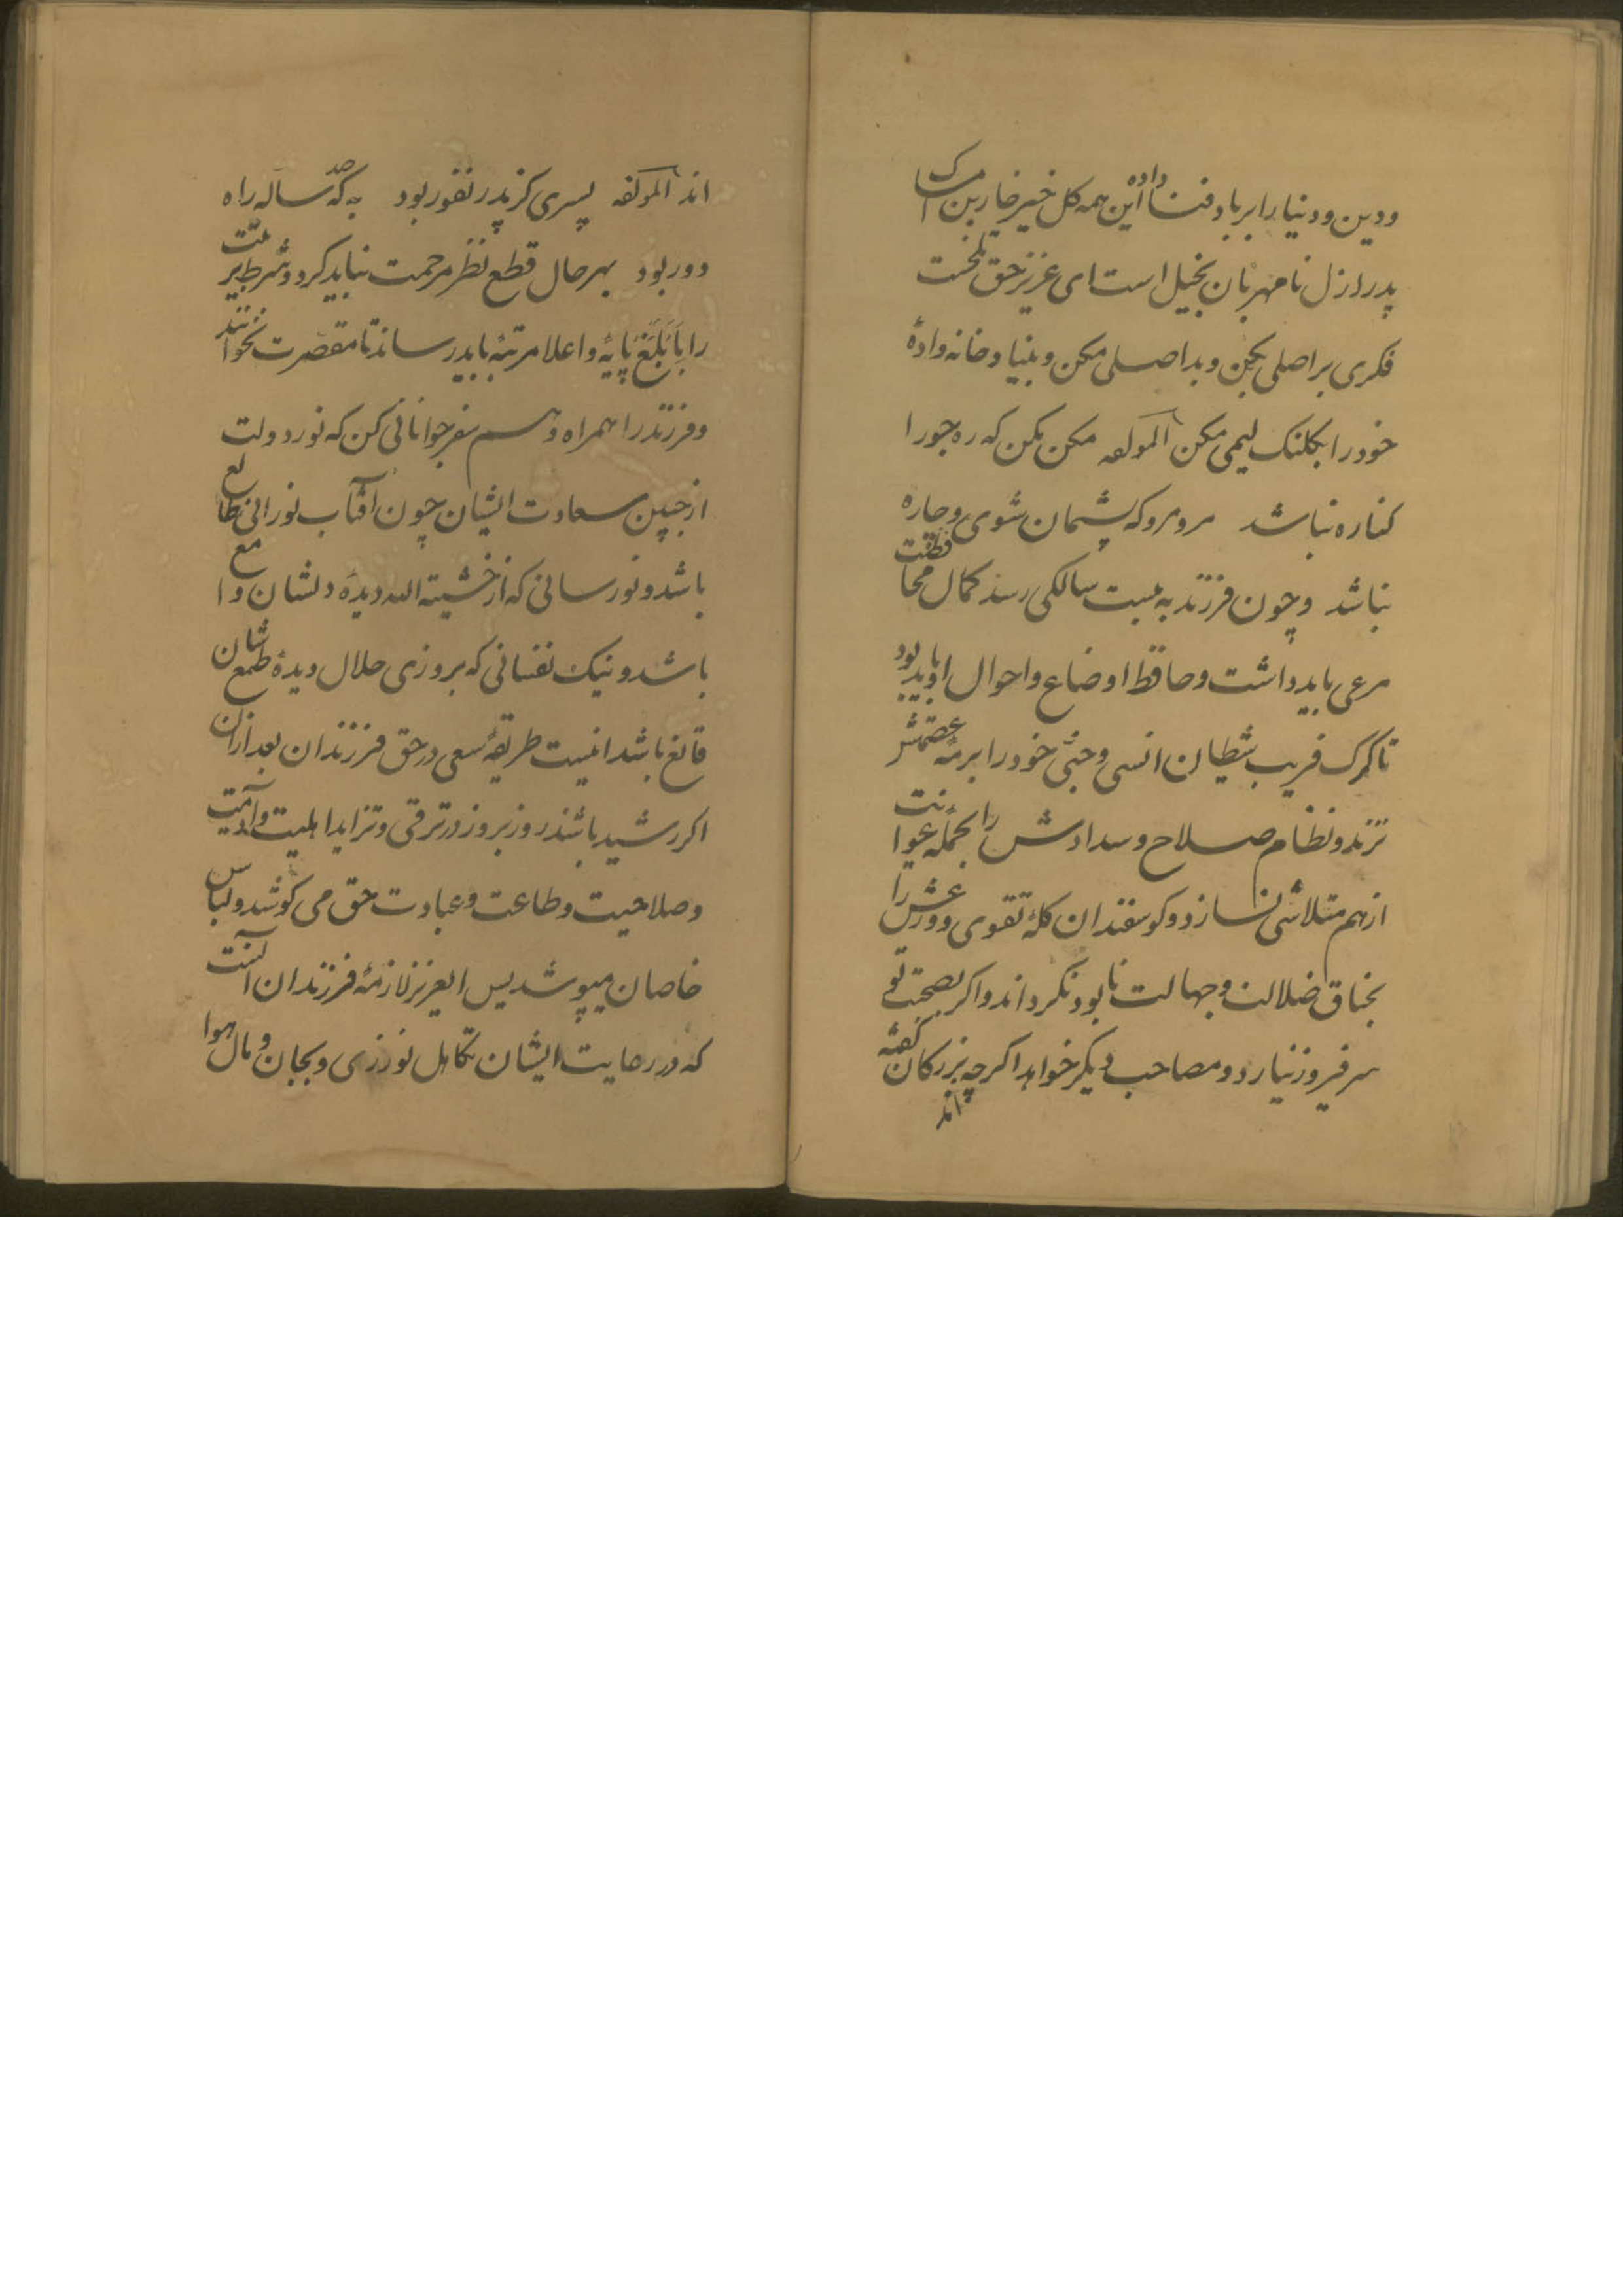 ودین و دنیا را بر باد فنا داده این همه کل خیر خار بن امساک
پدر از دل نامهربان بخیل است ای عزیز حق نخست
فکری بر اصلی بکن و بد اصلی مکن و بنیاد خانه وادهٔ
خود را بکلنک لیمی مکن المولفه مکن مکن که ره جور را
کناره نباشد مرو مرو که پشیمان شوی و چاره
نباشد و چون فرزند به بیست سالکی رسد کمال محافظت
مرعی باید داشت و حافظ اوضاع و احوال او باید بود
تا کرک فریب شیطان انسی و جنی خود را بر رمهٔ عصمتش
نزند و نظام صلاح و سدادش را بحملهٔ عوانت
از هم متلاشی نسازد و کوسفندان کلهٔ تقوی و ورعش را
بخناق ضلالت و جهالت نابود نکرداند و اکر بصحبت تو
سر فیروز نیارد و مصاحب دیکر خواهد اکرچه بزرکان کفته
اند
اند المولفه پسری کز پدر نفور بود به که صد ساله راه
دور بود بهر حال قطع نظر مرحمت نباید کرد و شرط تربیت
را با بلغ پایهٔ و اعلا مرتبهٔ باید رساند تا مقصرت نخوانند
و فرزند را همراه و هم سفر جوانانی کن که نور دولت
از جبین سعادت ایشان چون آفتاب نورانی طالع
باشد و نورسانی که از خشیته الله دیدهٔ دلشان وا مع
باشد و نیک نفسانی که بروزی حلال دیدهٔ طمعشان
قانع باشد اینست طریقهٔ سعی در حق فرزندان بعد ازان
اکر رشید باشند روز بروز در ترقی و تزاید اهلیت و آدمیت
و صلاحیت و طاعت و عبادت حق می کوشد و لباس
خاصان میپوشد پس ایعزیز لازمهٔ فرزندان آنست
که در رعایت ایشان تکاهل نورزی و بجان و مال هوا